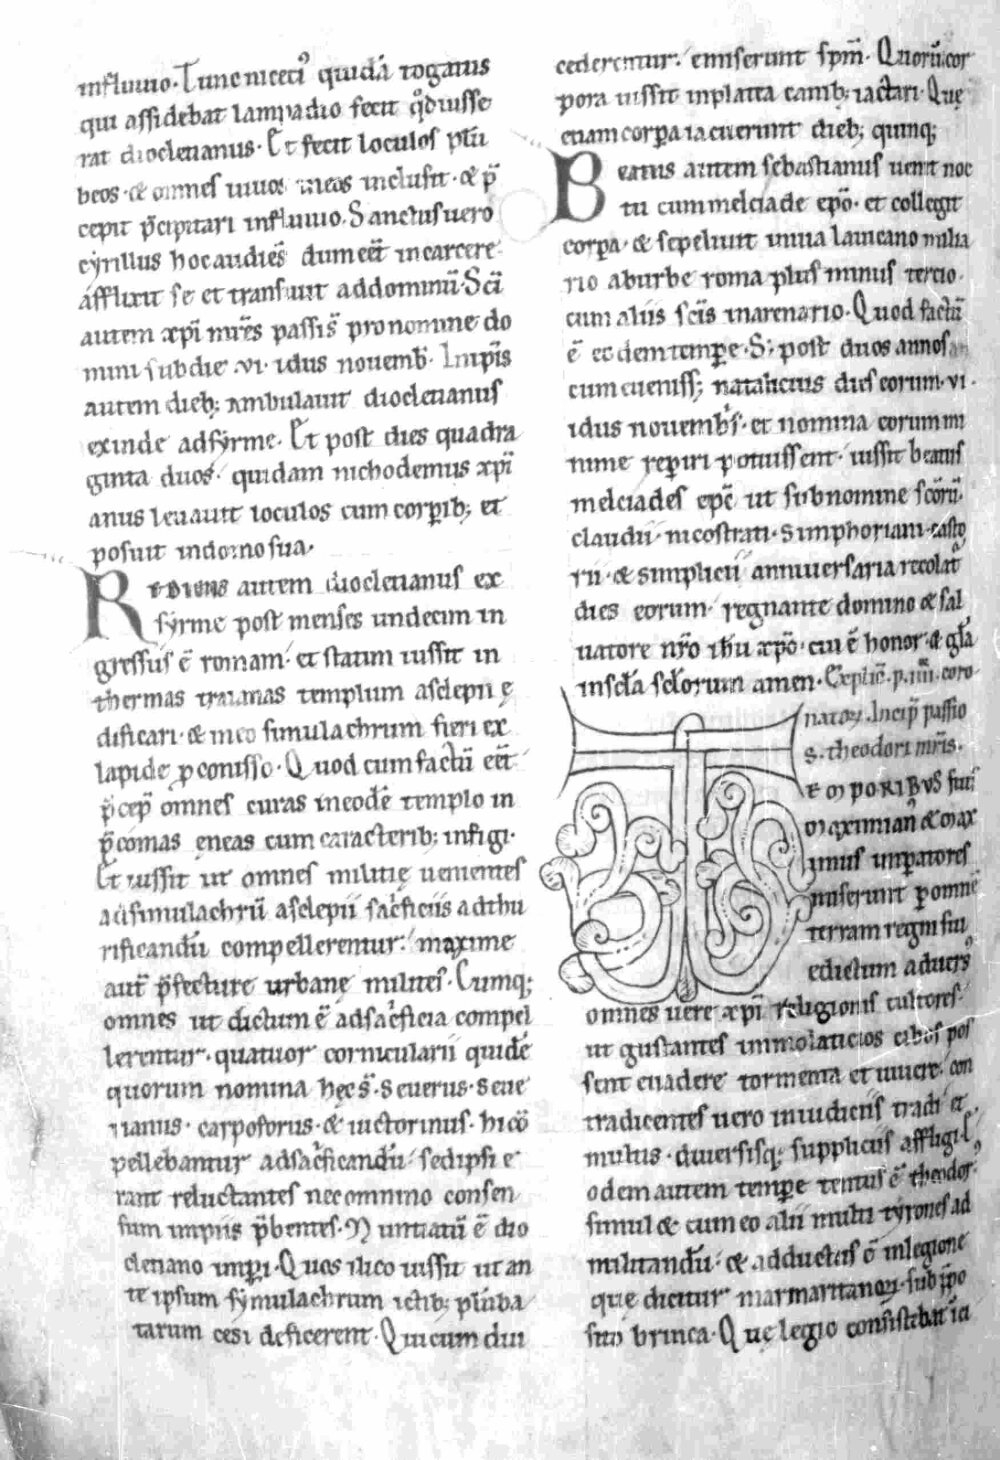 influuio. Tunc niceti᾽ quidā togatus
qui assidebat lampadio fecit qđ iusse
rat dioclenanus. Et fecit loculos plū
beos. & omnes uiuos in eos inclusit. & p̄
cepit p̄cipitari influuio. Sanctus uero
cyrillus hoc audiēs dum eēt in carcere
afflixit se et transiuit ad dominū. Sc̄i
autem xp̄i mr̄es passis̄ pro nomine do
mini sub die .vi. idus nouemb̄. Inip̄is
autem dieb; ambulauit dioclenanus
exinde adsyrme. Et post dies quadra
ginta duos. quidam nichodemus xp̄i
anus leuauit loculos cum corꝑib; et
posuit in domo sua.
REDIENS autem dioclenanus ex
syrme post menses undecim in
gressus ē romam. et statim iussit in
thermas traianas templum asclepii ę
dificari. & in eo simulachrum fieri ex
lapide ꝓconisso. Quod cum factū eēt
p̄cep̄ omnes curas in eodē templo in
p̄comas ęneas cum caracterib; infigi.
Et iussit ut omnes militię uenientes
ad simulachrū asclepii sac̓ficiis ad thu
rificandū compellerentur. maxime
aut̄ p̄fecture urbanę milites. Cumq;
omnes ut dictum ē ad sac̓ficia compel
lerentur. quatuor cornicularii quidē
quorum nomina hęc s̄. Seuerus. Seue
rianus. carpoforus. & uictorinus. hi cō
pellebantur ad sac̓ficandū. sed ipsi e
rant reluctantes nec omnino consen
sum impiis p̄bentes. Nuntiatū ē dio
clenano imꝑi. Quos ilico iussit ut an
te ipsum symulachrum ictib; plūba
tarum cesi deficerent. Qui cum diu
cederentur. emiserunt sp̄m. Quorū cor
pora iussit in platea canib; iactari. Que
etiam corꝑa iacuerunt dieb; quinq;
Beatus autem sebastianus uenit noc
tu cum melciade ep̄o. et collegit
corꝑa. & sepeliuit in uia lauicano milia
rio ab urbe roma plus minus tercio.
cum aliis sc̄is in arenario. Quod factū
ē eodem temꝑe. S; post duos annos
cum euenisset natalicius dies eorum. vi.
idus nouemb̄s. et nomina eorum mi
nime reꝑiri potuissent. iussit beatus
melciades ep̄c ut sub nomine sc̄orū.
claudii. nicostrati. Simphoriani. casto
rii. & Simplicii anniuersaria recolat᾽
dies eorum. regnante domino & sal
uatore nr̄o ihu xp̄o. cui ē honor & gl̄a
in sc̄la sc̄lorum amen. Explic̄. p. iiii. coro
natoꝝ. Incip̄ passio
S. theodori mr̄is.
TEMPORIBUS suis
Maximian᾽ & Max
imus imꝑatores
miserunt ꝑ omnē
terram regni sui
edictum aduers᾽
omnes uere xp̄i religionis cultores.
ut gustantes immolaticios cibos pos
sent euadere tormenta et uiuere. con
tradicentes uero in iudiciis tradi et
multis. diuersisq; suppliciis affligi.
Eodem autem temꝑe tentus ē theodor᾽
simul & cum eo alii multi tyrones ad
militandū. & adductus ē in legione
quę dicitur marmaritanoꝝ. sub ip̄o
sito brinca. Quę legio consistebat iā